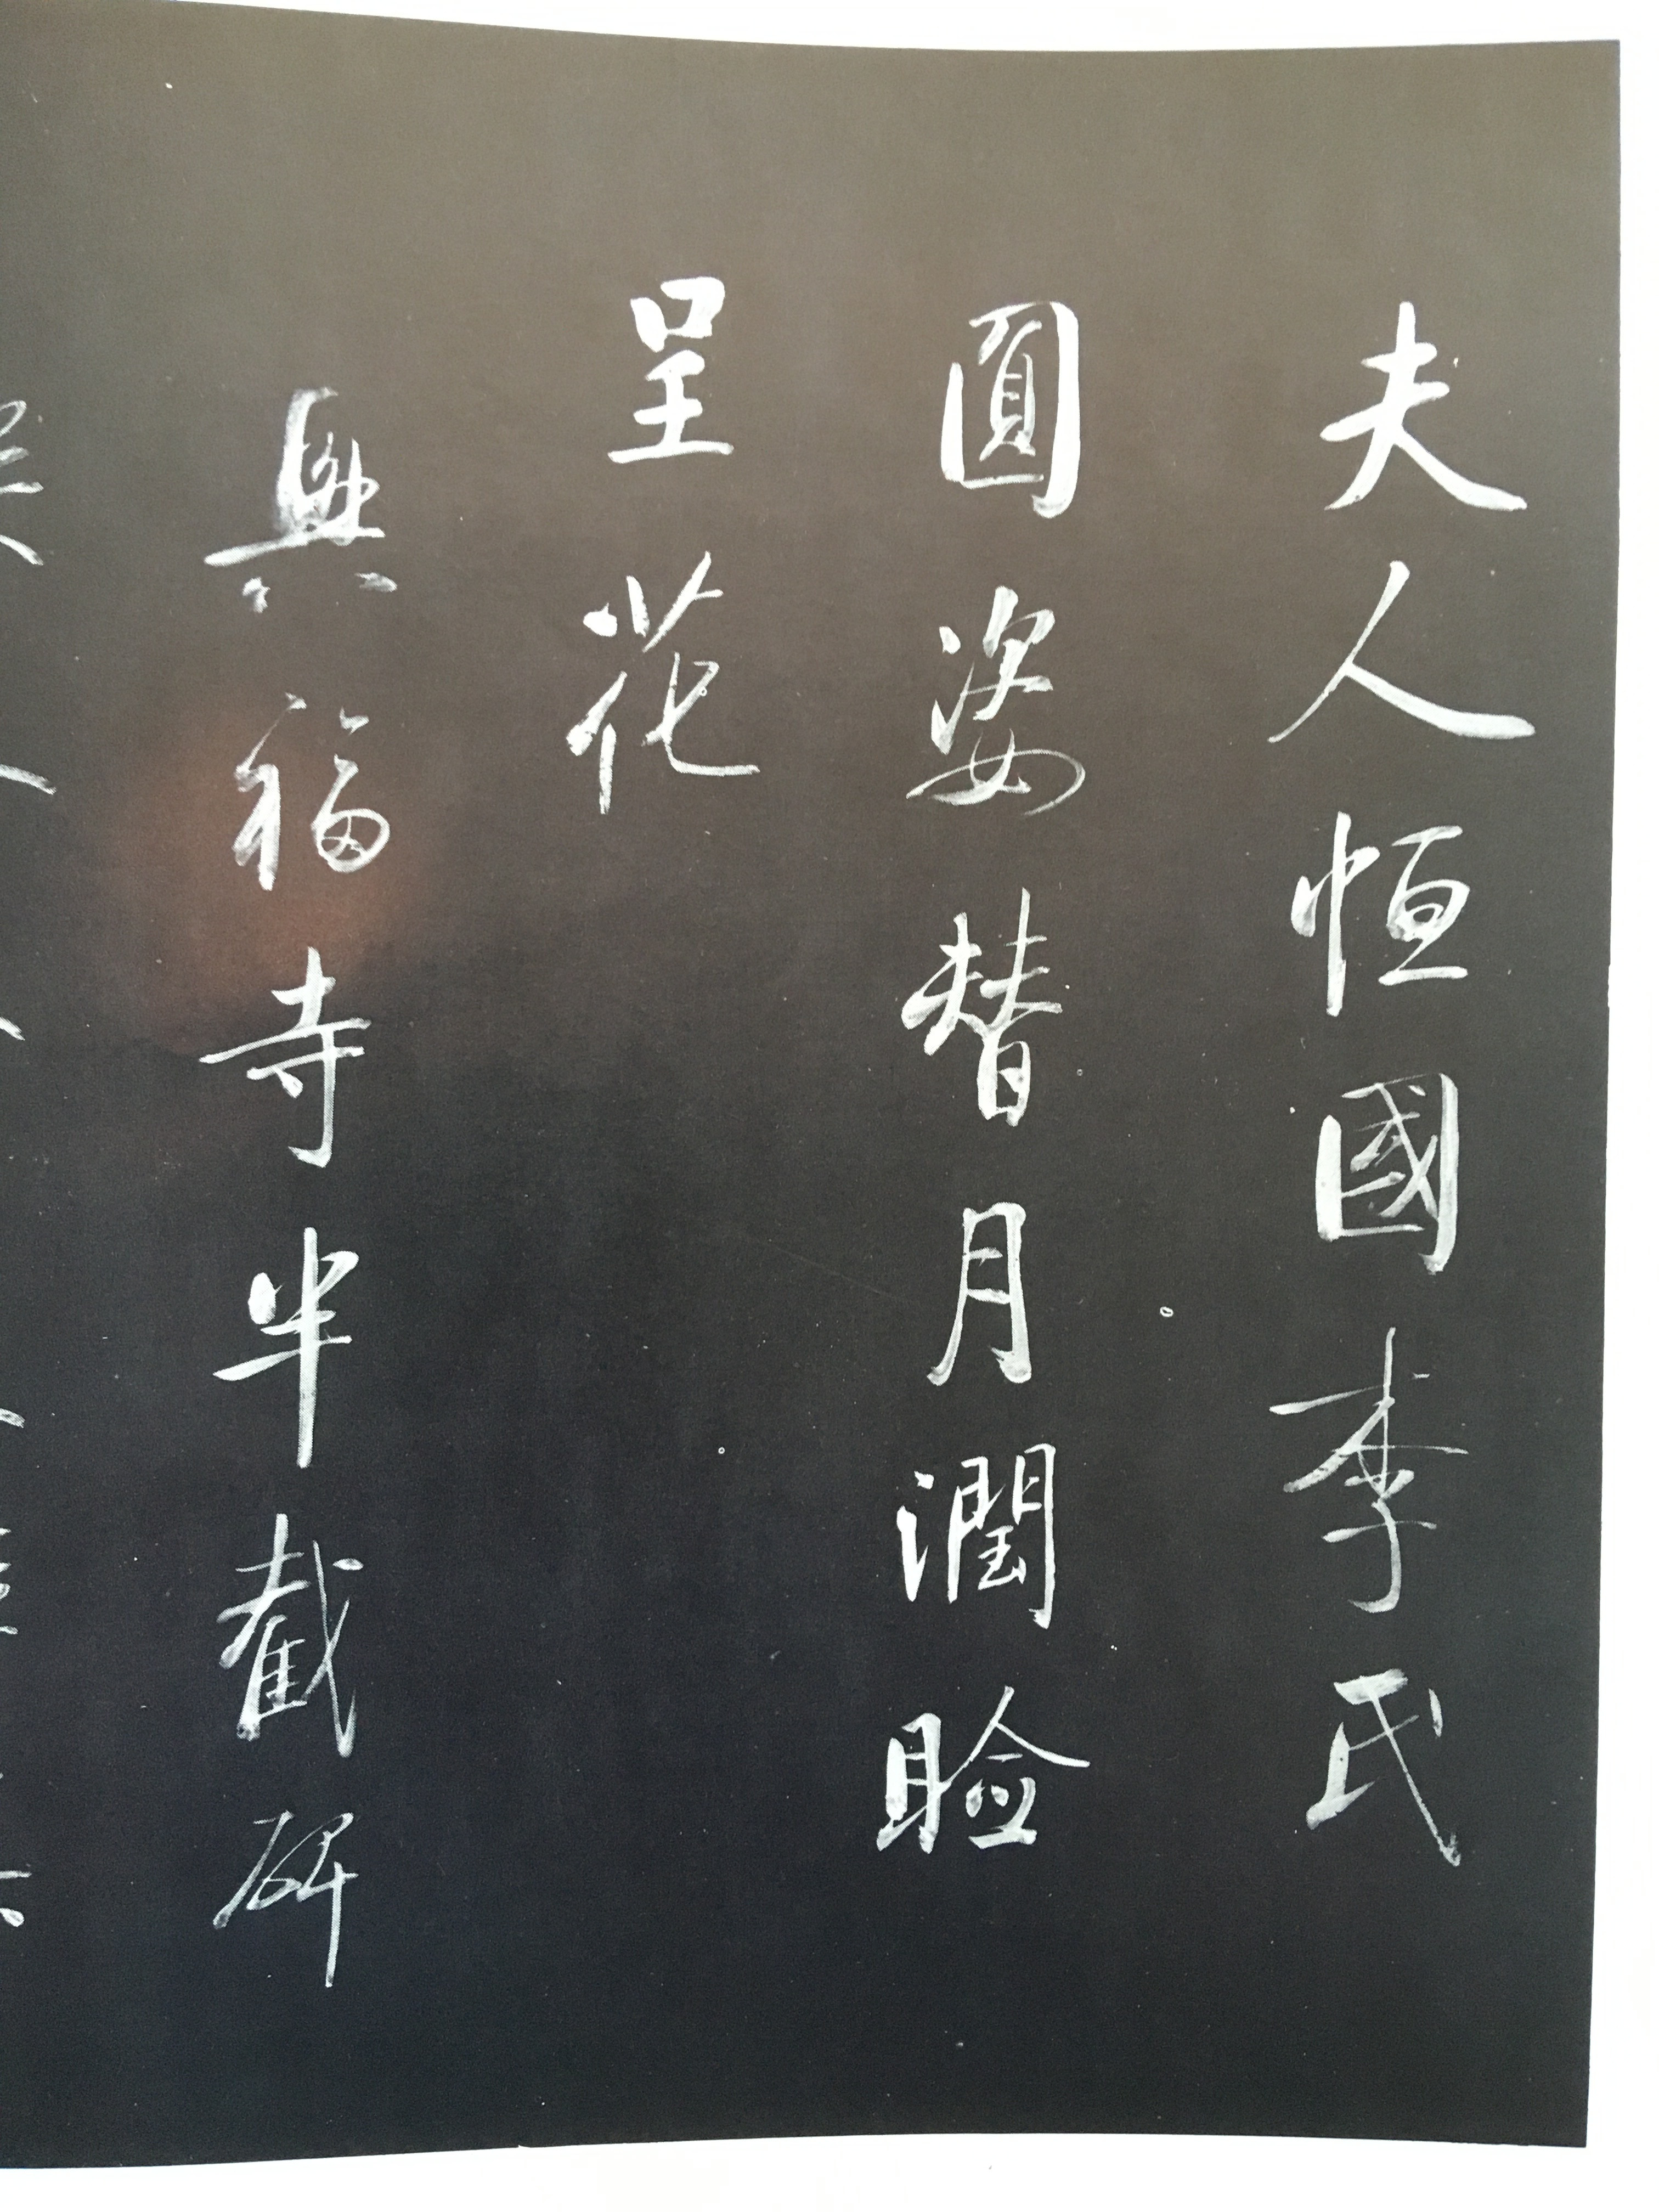 夫人恒國李氏
圓姿替月潤瞼
呈花
興福寺半截碑